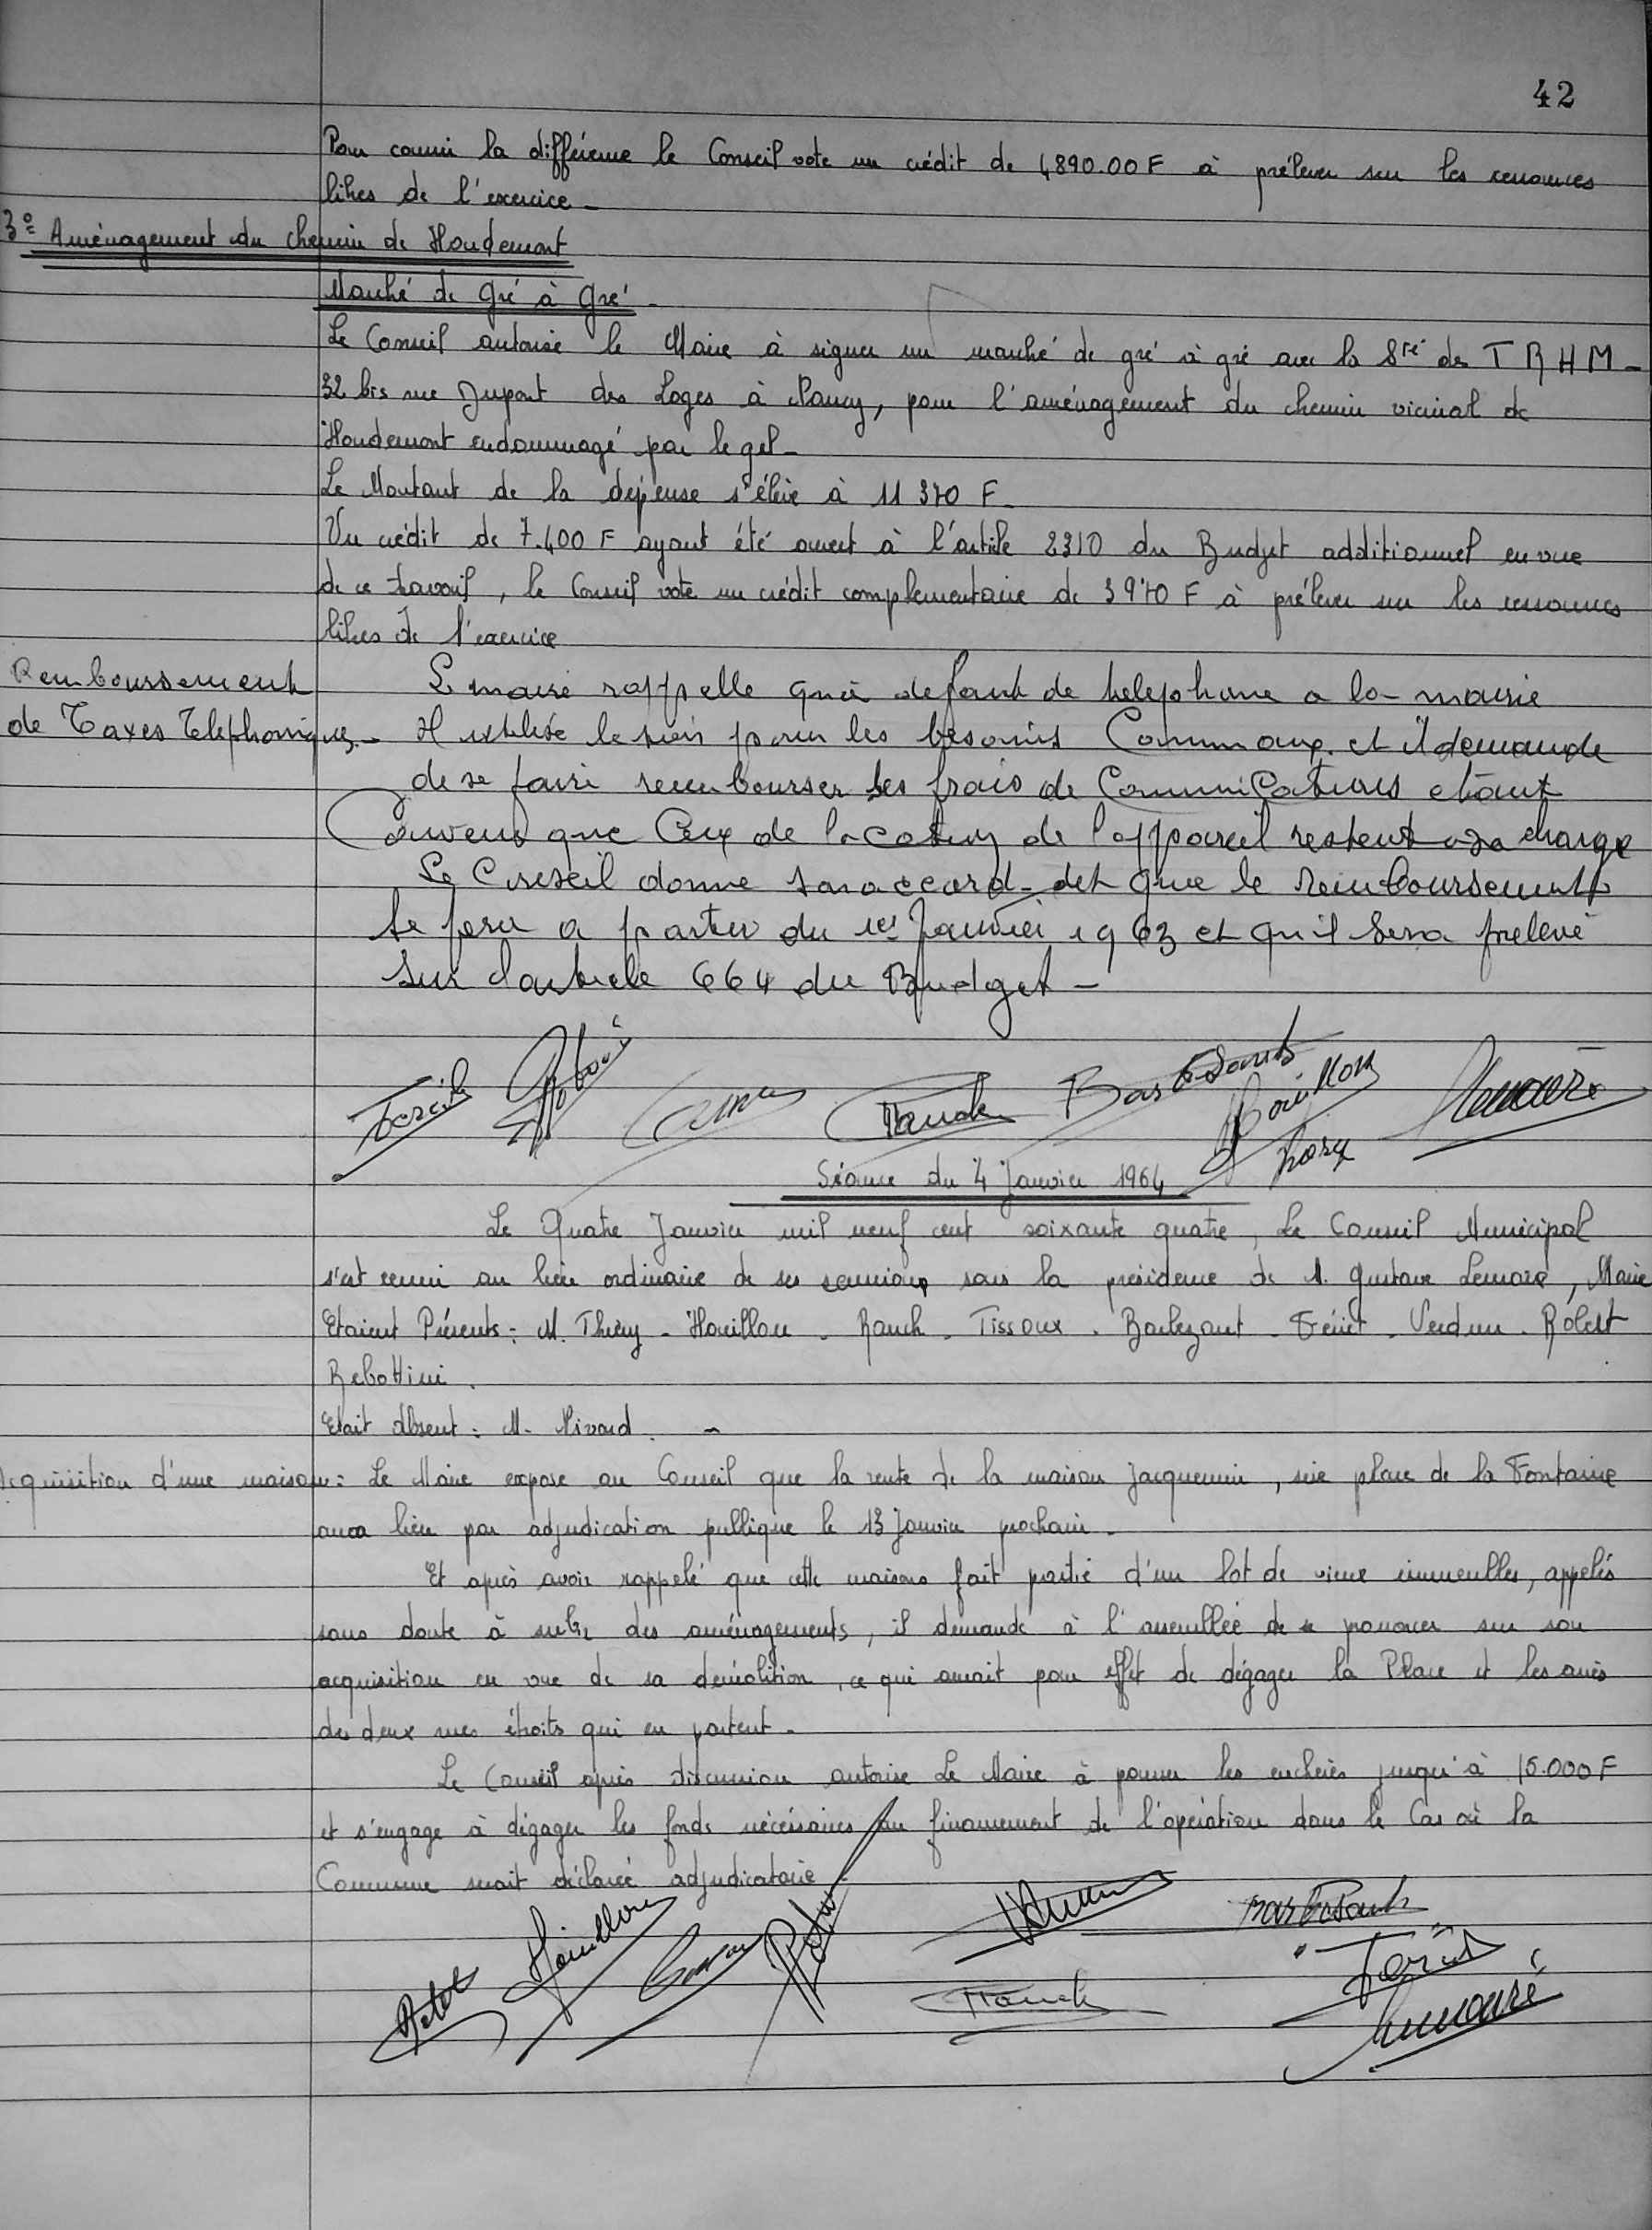 42
Pour couvrir la différence le Conseil vote un crédit de 4890.00 F à prélever sur les ressources
libres de l'exercice _
3º= Aménagement du chemin de Houdemont
Marché de Gré à Gré -
Le Conseil autorise le Maire à signer un marché de gré à gré avec la Sté des T R H M -
32 bis rue Dupont des Loges à Nancy, pour l'aménagement du chemin vicinal de
Houdemont endommagé par le gel -
Le Montant de la dépense s'élève à 11 370 F -
Un crédit de 7.400 F ayant été ouvert à l'article 2310 du Budget additionnel en vue
de ce travail, le Conseil vote un crédit complementaire de 3970 F à prélever sur les ressources
libres de l'exercice
Remboursement
de Taxes Telephoniques -
Le maire rappelle qu'à defaut de telephone a la mairie
Il utilise le sien pour les besoins Communaux. et il demande
de se faire rembourser les frais de Communications etant
Convenu que Ceux de location de l'appareil restent a sa charge
Le Conseil donne son accord - dit que le remboursement
se fera a partir du 1er Janvier 1963 et qu'il sera prelevé
sur l'article 664 du Budget -
Ferit
Rauch
Barbezant
Houillon
Lemoire
Séance du 4 Janvier 1964
Le Quatre Janvier mil neuf cent soixante quatre, Le Conseil Municipal
s'est reuni au lieu ordinaire de ses reunions sous la présidence de M. Gustave Lemoire, Maire
Etaient Présents : M. Thiéry - Houillon - Rauch - Tissoux - Barbezant - Fériet - Verdun - Robert
Rebottini.
Etait Absent : M. Nivard. -
Acquisition d'une maison : Le Maire expose au Conseil que la vente de la maison Jacquemin, sise place de la Fontaine
aura lieu par adjudication publique le 13 Janvier prochain -
Et après avoir rappelé que cette maison fait partie d'un lot de vieux immeubles, appelés
sans doute à subir des aménagements, il demande à l'assemblée de se prononcer sur son
acquisition en vue de sa démolition, ce qui aurait pour effet de dégager la Place et les accès
des deux rues étroites qui en partent -
Le Conseil après discussion autorise Le Maire à pousser les enchères jusqu'à 15.000 F
et s'engage à dégager les fonds nécéssaires au financement de l'opération dans le Cas où la
Commune serait déclarée adjudicataire -
Houillon
Barbezant
Rauch
Fériet
Lemoire